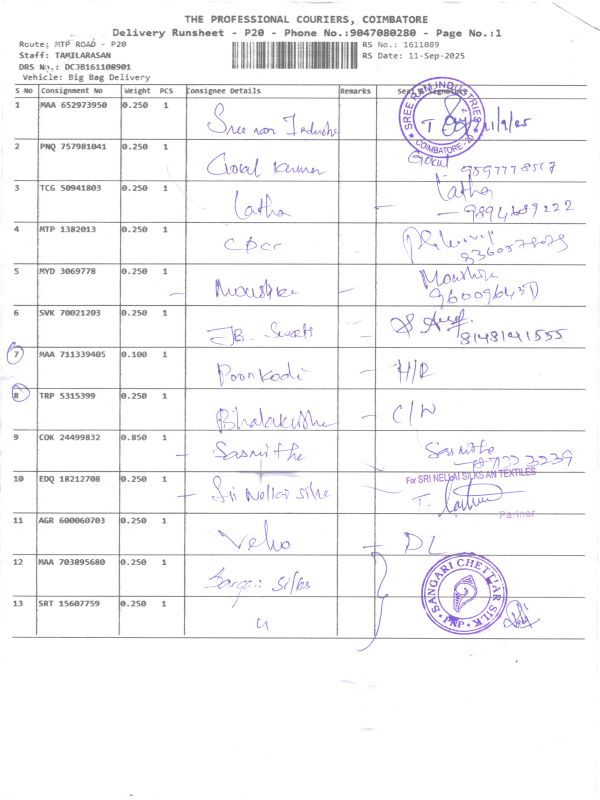 THE PROFESSIONAL COURIERS, COIMBATORE
Delivery Runsheet - P20 - Phone No.:9047080280 - Page No.:1
Route: MTP ROAD - P20
RS No.: 1611089
Staff: TAMILARASAN
RS Date: 11-Sep-2025
DRS No.: DCJB161108901
Vehicle: Big Bag Delivery
S No Consignment No Weight PCS Consignee Details Remarks
1 MAA 652973950 0.250 1 Sree
SREE RAM INDUSTRIES
COIMBATORE - 20
11/9/25
2 PNQ 757981041 0.250 1 Gokul Kumar Gokul
3 TCG 50941803 0.250 1 Latha - Latha
4 MTP 1382013 0.250 1
5 MYD 3069778 0.250 1 -
6 SVK 70021203 0.250 1 JB. Sweets
8148141555
7 MAA 711339405 0.100 1 Poonkodi - H/R
8 TRP 5315399 0.250 1 -
9 COK 24499832 0.850 1 - Sasmitha Sasmitha
10 EDQ 18212708 0.250 1 - Sri Nellai
For SRI NELLAI SILKS AN TEXTILES
Partner
11 AGR 600060703 0.250 1 - DL
12 MAA 703895680 0.250 1 Silks
SANGARI CHETTIAR SILK
PNP
13 SRT 15607759 0.250 1 "